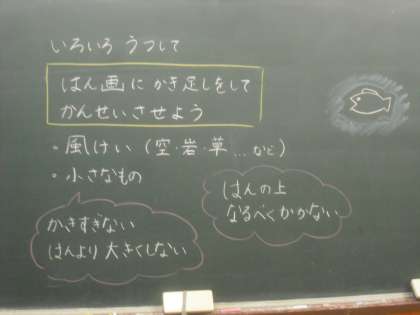 いろいろ うつして
はん画に かき足しをして
かんせいさせよう
・風けい (空・岩・草…など)
・小さなもの
はんの上
なるべくかかない
かきすぎない
はんより 大きくしない